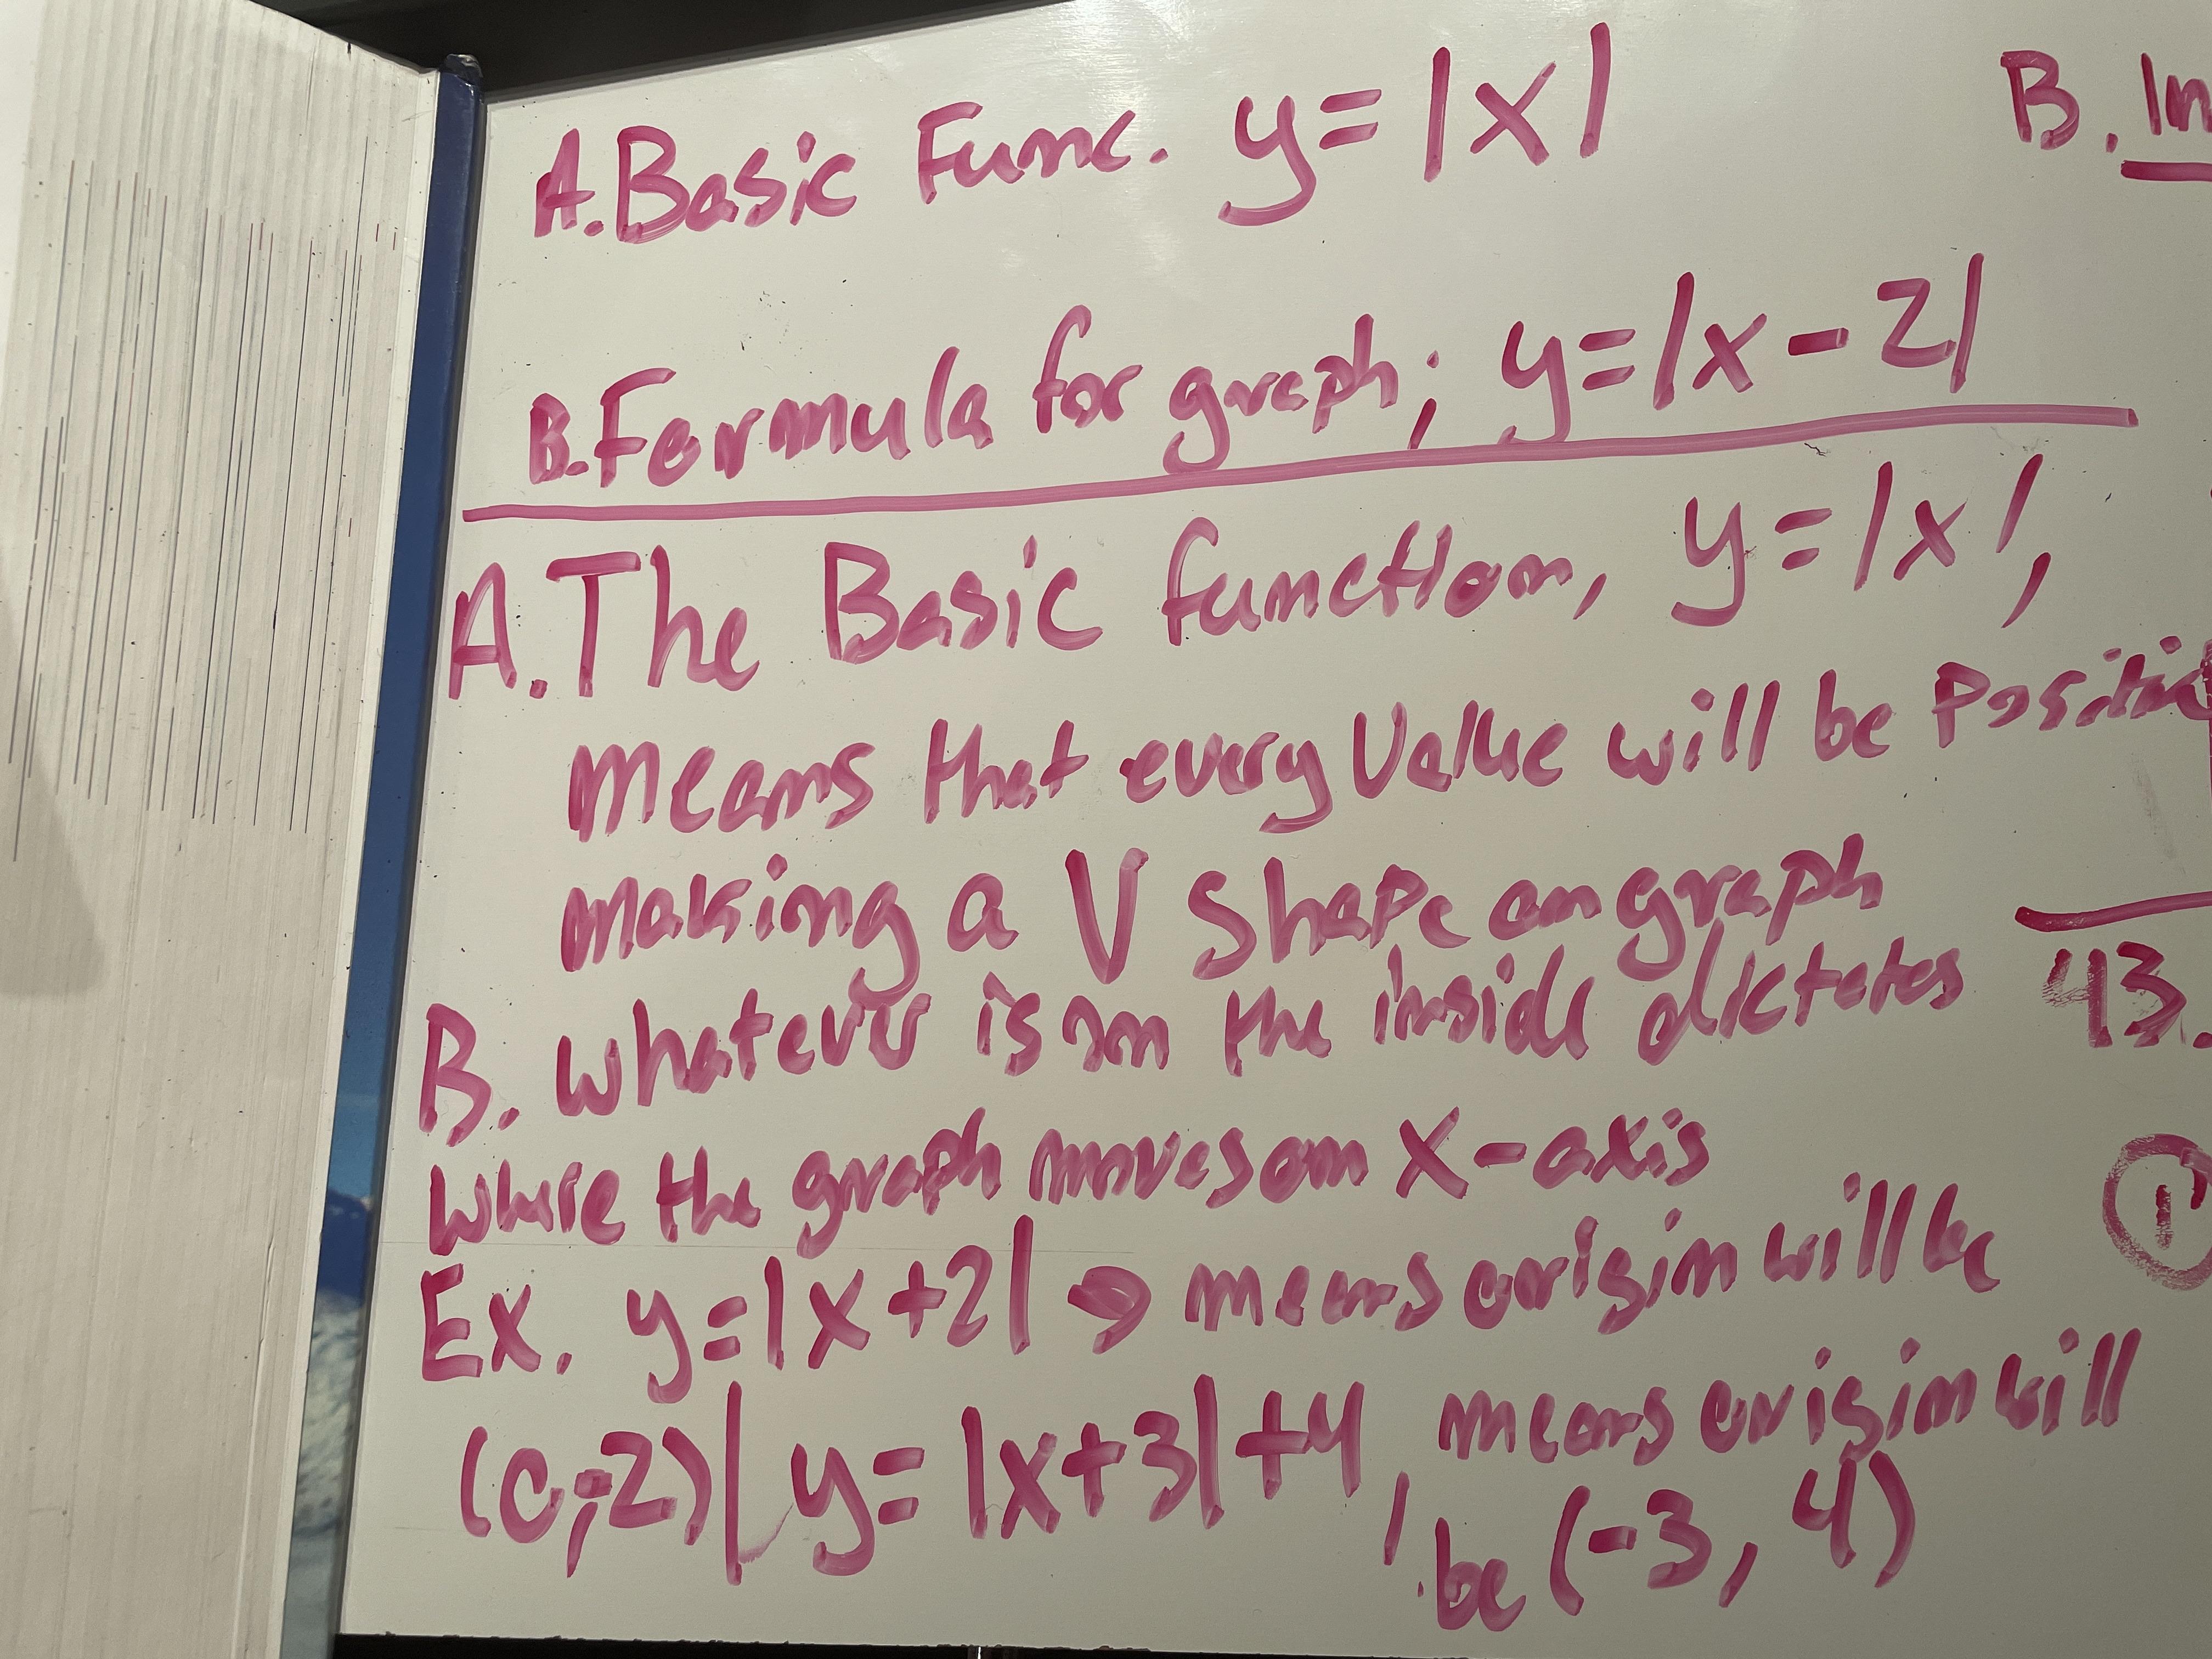 A. Basic Func. y=|x|
B. Formula for graph; y=|x-2|
A. The Basic function, y=|x|,
means that every Value will be Positive
making a V shape on graph
B. whatever is on the inside dictates
where the graph moves on x-axis
Ex. y=|x+2| → means origin will be
(0,-2) | y=|x+3|+4, means origin will
be (-3, 4)
B. In
43.
1